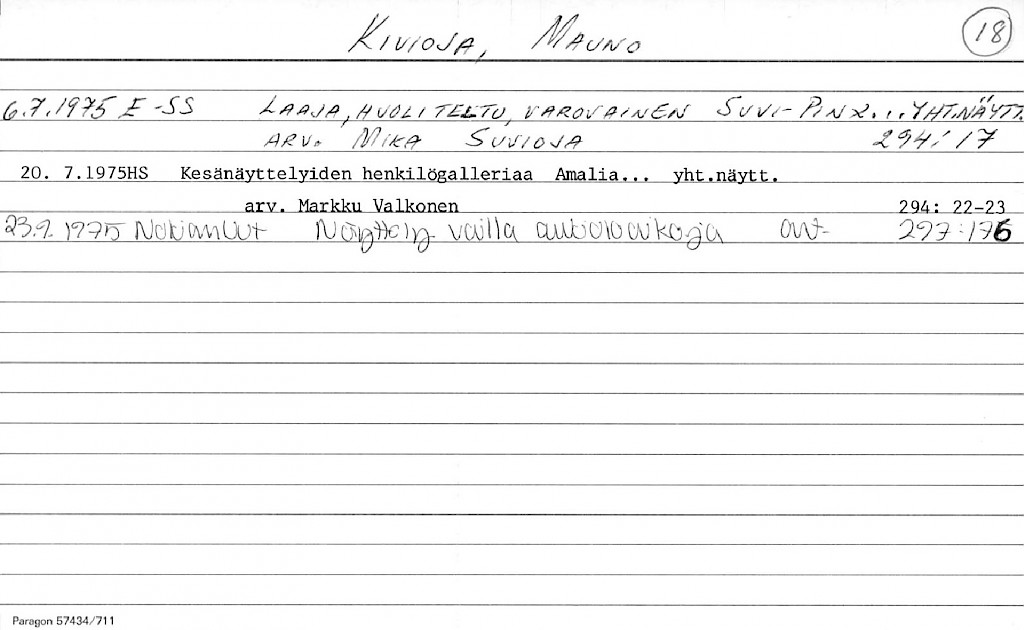 KIVIOJA, MAUNO 18
6.7.1975 E-SS LAAJA, HUOLITELTU, VAROVAINEN SUVI-PINX... YHT.NÄYTT.
ARV. MIKA SUVIOJA 294:17
20. 7.1975HS Kesänäyttelyiden henkilögalleriaa Amalia... yht.näytt.
arv. Markku Valkonen 294: 22-23
23.9.1975 NokianUut Näyttely vailla aukioloaikoja art. 297:176
Paragon 57434/711